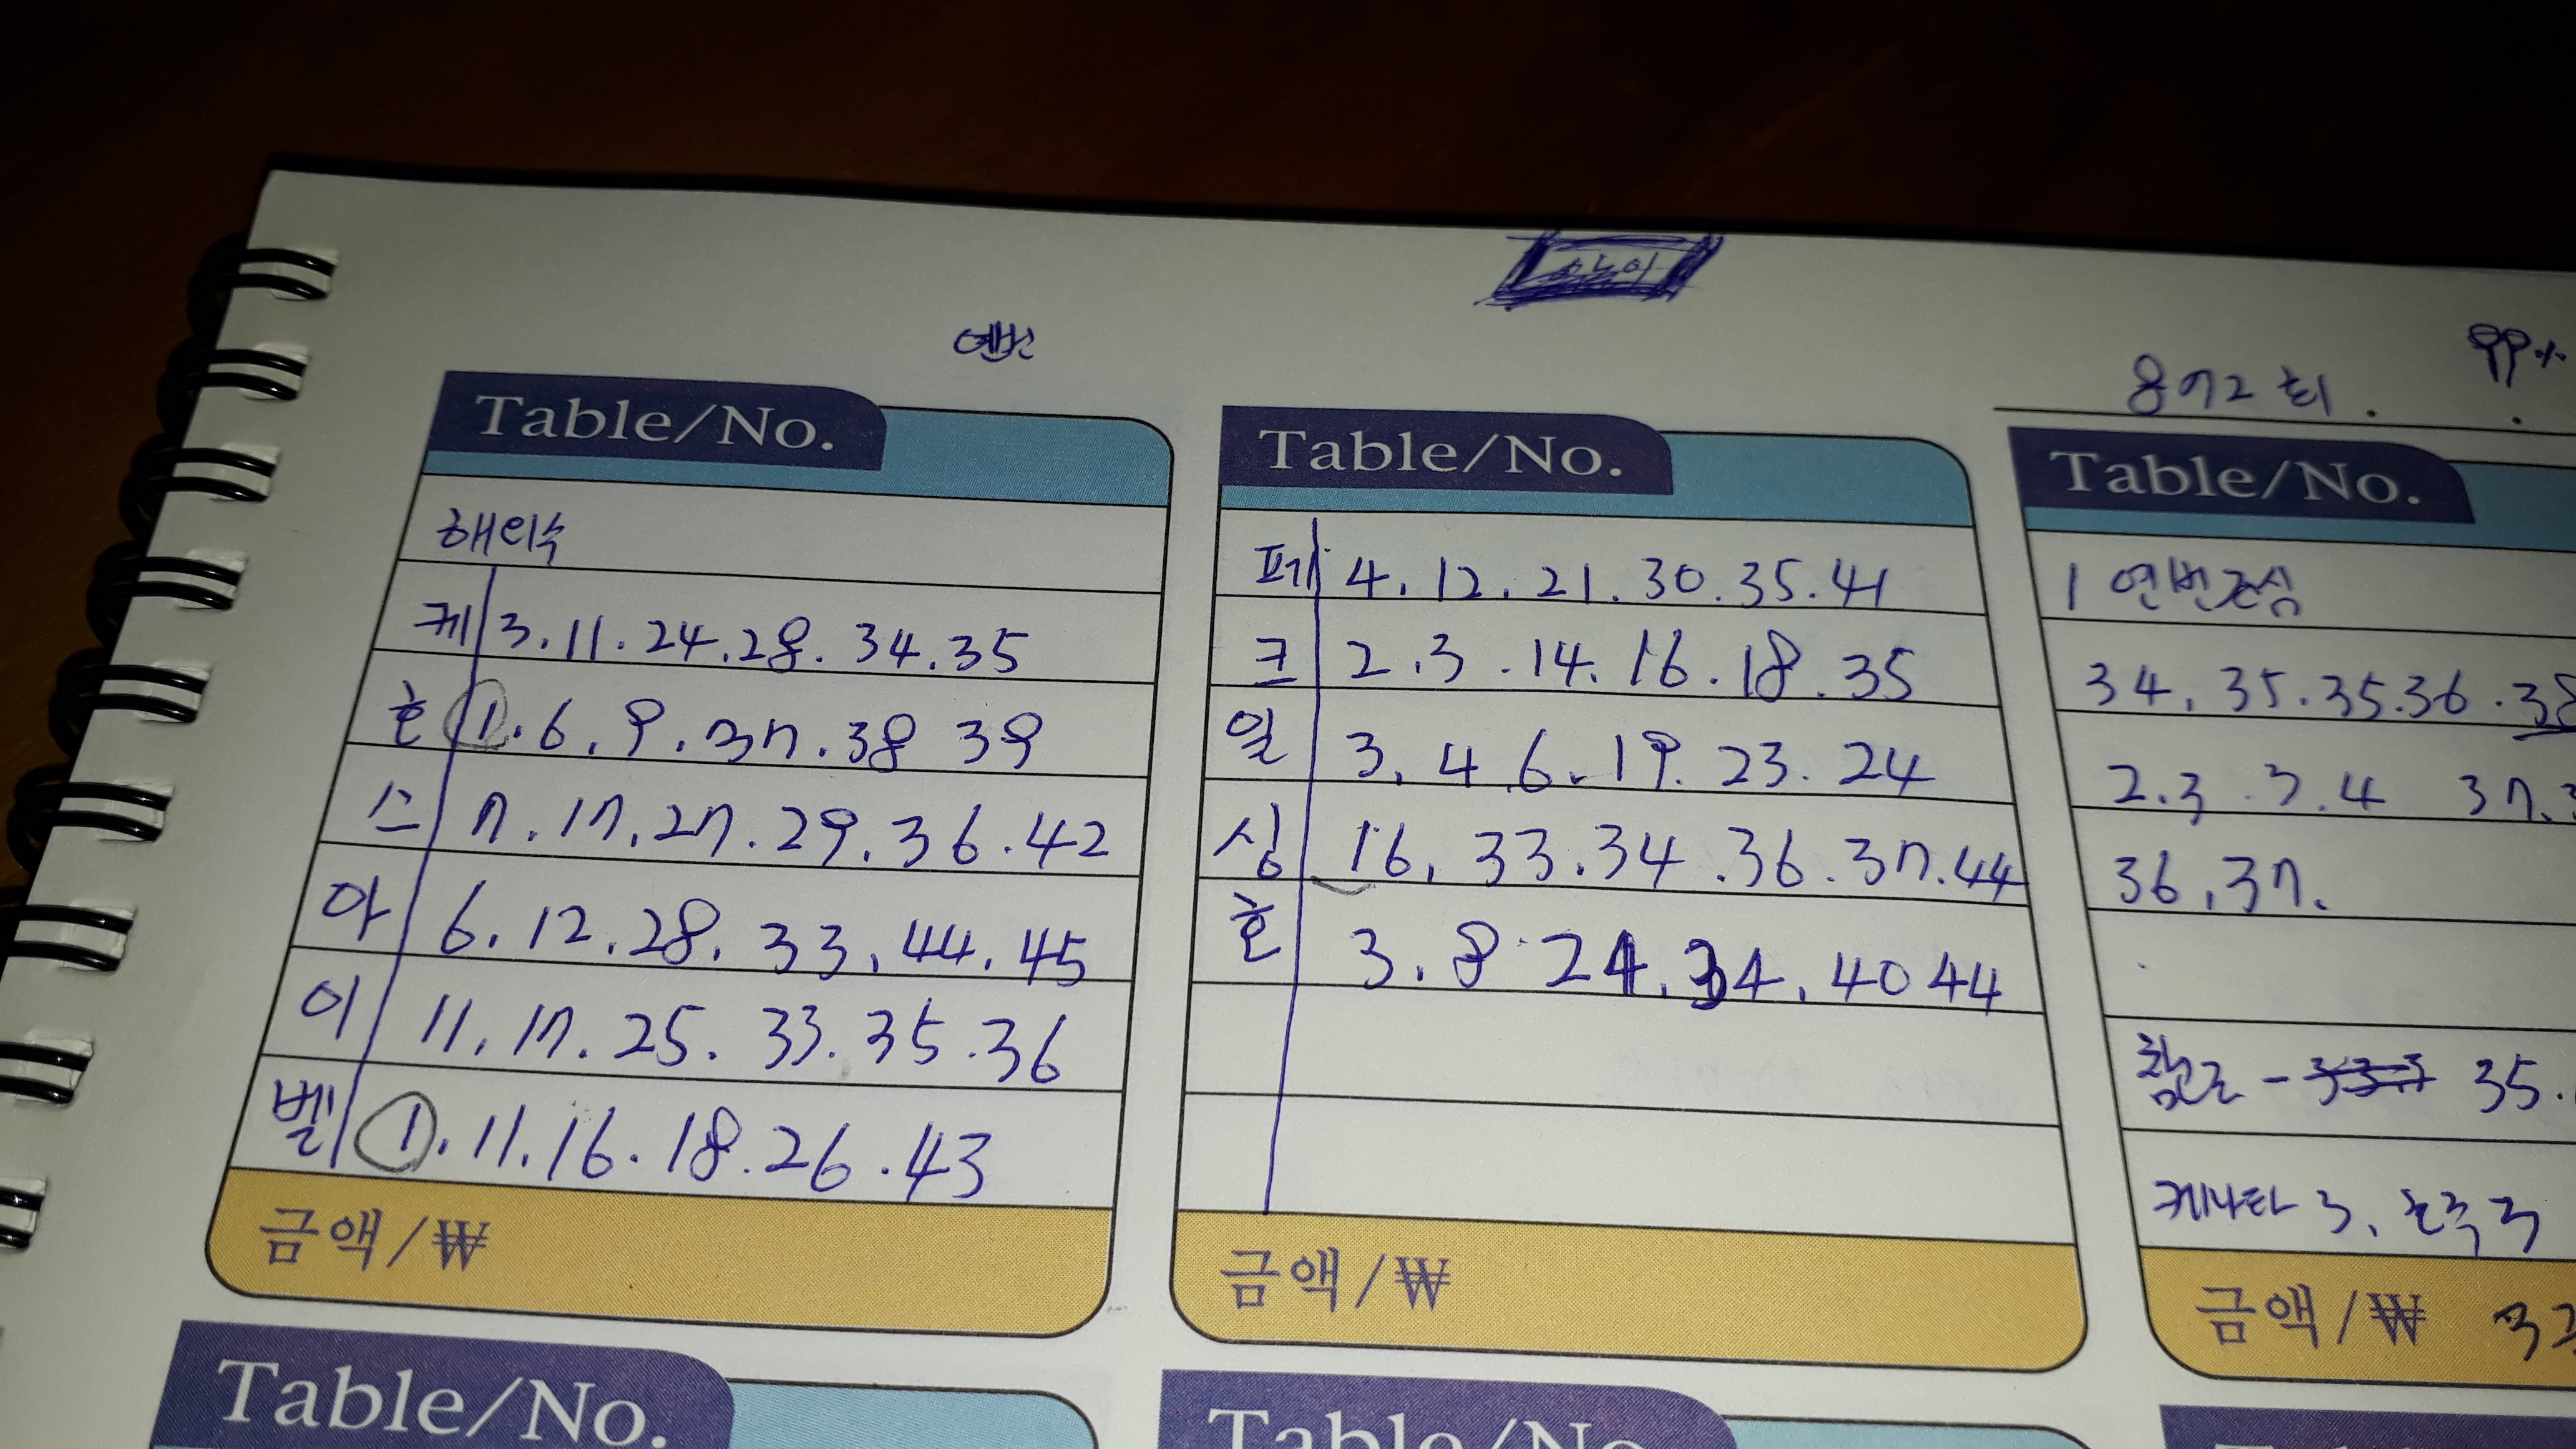 872회.
Table/No.
해외수
케 3.11.24.28.34.35
호 1.6.9.37.38 39
스 7.17.27.29.36.42
아 6.12.28.33.44.45
이 11.17.25.33.35.36
벨 1.11.16.18.26.43
금액/₩
Table/No.
페 4.12.21.30.35.41
크 2.3.14.16.18.35
일 3.4 6.19.23.24
싱 16.33.34.36.37.44
호 3.8 24.34.40 44
금액/₩
Table/No.
1 연번중심
34.35.35.36.38
2.3.3.4 37.3
36.37.
참고 - 35.
케나타 3. 호주 3
금액/₩
Table/No.
Table/No